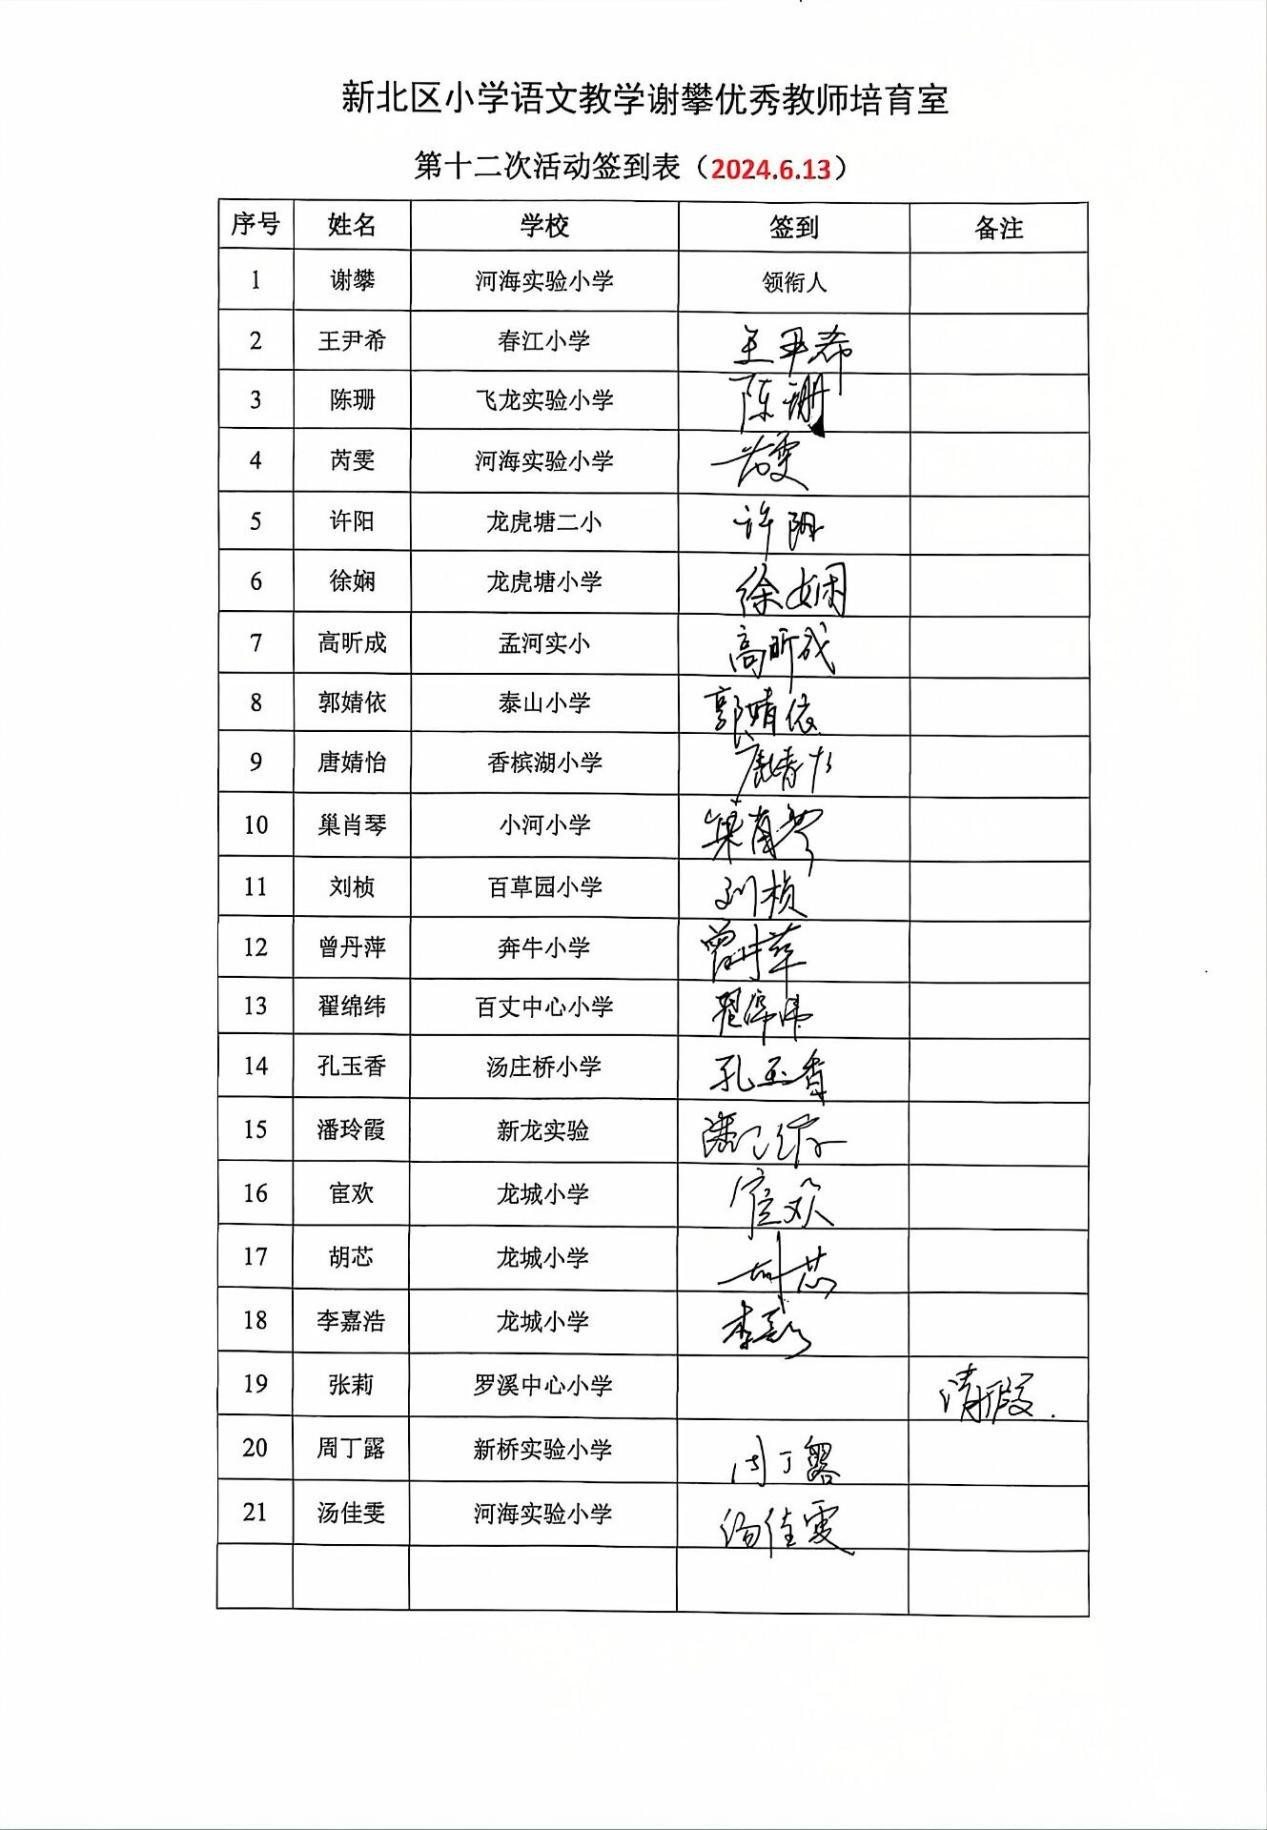 新北区小学语文教学谢攀优秀教师培育室
第十二次活动签到表（2024.6.13）
序号 姓名 学校 签到 备注
1 谢攀 河海实验小学 领衔人
2 王尹希 春江小学 王尹希
3 陈珊 飞龙实验小学 陈珊
4 芮雯 河海实验小学 芮雯
5 许阳 龙虎塘二小 许阳
6 徐娴 龙虎塘小学 徐娴
7 高昕成 孟河实小 高昕成
8 郭婧依 泰山小学 郭婧依
9 唐婧怡 香槟湖小学 唐婧怡
10 巢肖琴 小河小学 巢肖琴
11 刘桢 百草园小学 刘桢
12 曾丹萍 奔牛小学 曾丹萍
13 翟绵纬 百丈中心小学 翟绵纬
14 孔玉香 汤庄桥小学 孔玉香
15 潘玲霞 新龙实验 潘玲霞
16 宦欢 龙城小学 宦欢
17 胡芯 龙城小学 胡芯
18 李嘉浩 龙城小学 李嘉浩
19 张莉 罗溪中心小学 请假.
20 周丁露 新桥实验小学 周丁露
21 汤佳雯 河海实验小学 汤佳雯